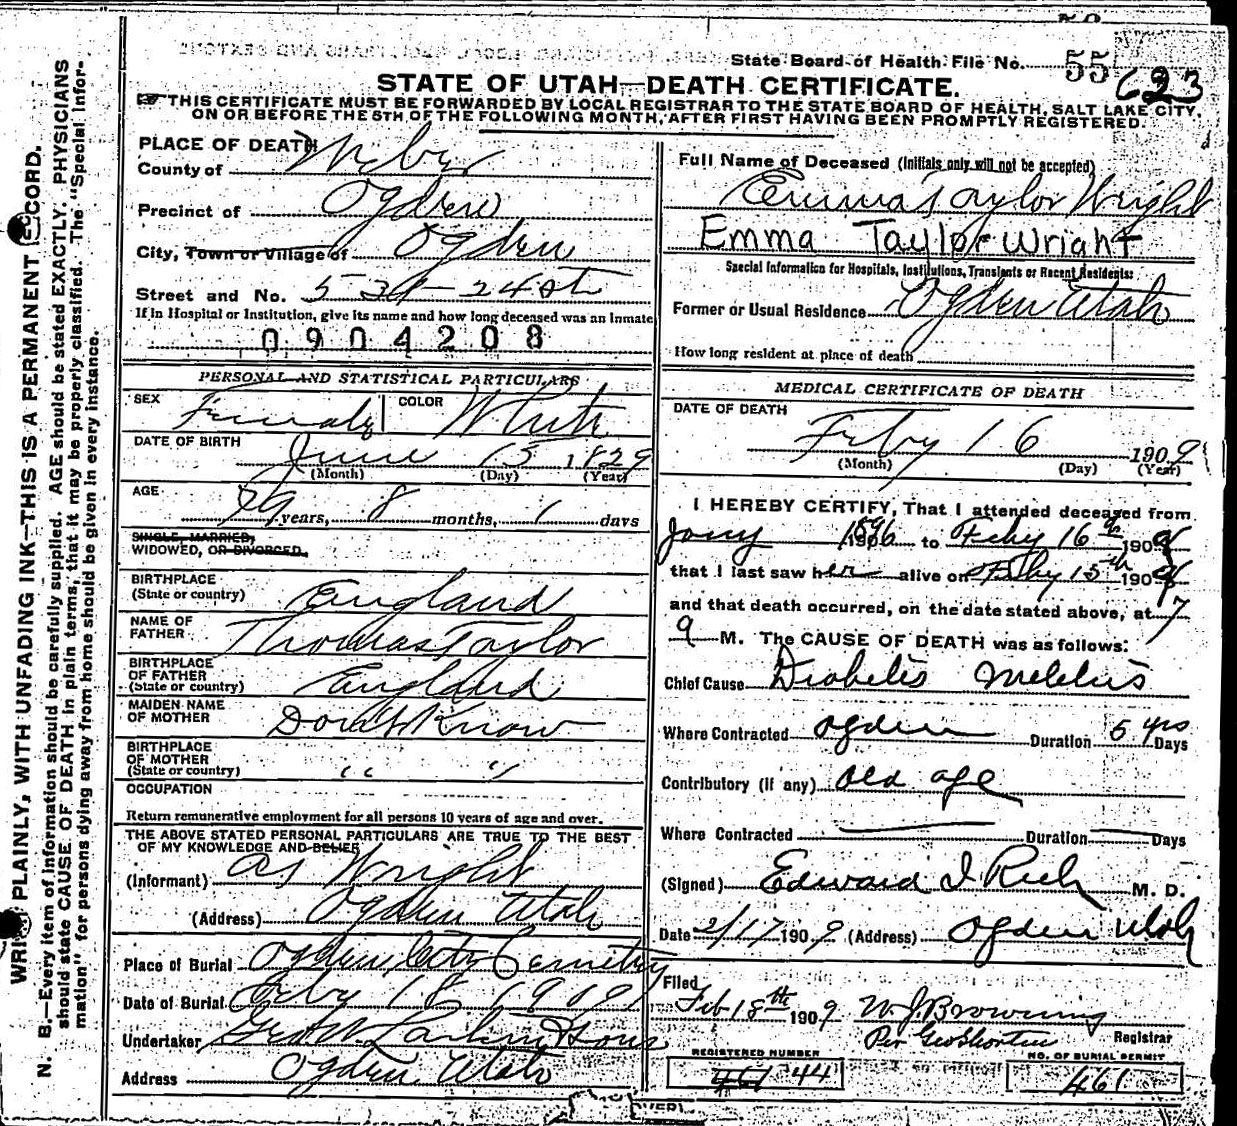 State Board of Health File No. 55 623
STATE OF UTAH—DEATH CERTIFICATE.
THIS CERTIFICATE MUST BE FORWARDED BY LOCAL REGISTRAR TO THE STATE BOARD OF HEALTH, SALT LAKE CITY,
ON OR BEFORE THE 5TH OF THE FOLLOWING MONTH, AFTER FIRST HAVING BEEN PROMPTLY REGISTERED.
WRITE PLAINLY, WITH UNFADING INK—THIS IS A PERMANENT RECORD.
N. B.—Every item of information should be carefully supplied. AGE should be stated EXACTLY. PHYSICIANS
should state CAUSE OF DEATH in plain terms, that it may be properly classified. The "Special Infor-
mation" for persons dying away from home should be given in every instance.
PLACE OF DEATH
County of Weber
Precinct of Ogden
City, Town or Village of Ogden
Street and No. 24 st
If in Hospital or Institution, give its name and how long deceased was an Inmate
0904208
PERSONAL AND STATISTICAL PARTICULARS
SEX Female COLOR White
DATE OF BIRTH June 15 1829
(Month) (Day) (Year)
AGE 79 years, 8 months, 1 days
SINGLE, MARRIED,
WIDOWED, OR DIVORCED.
BIRTHPLACE
(State or country) England
NAME OF
FATHER Thomas Taylor
BIRTHPLACE
OF FATHER
(State or country) England
MAIDEN NAME
OF MOTHER Dont Know
BIRTHPLACE
OF MOTHER
(State or country) " "
OCCUPATION
Return remunerative employment for all persons 10 years of age and over.
THE ABOVE STATED PERSONAL PARTICULARS ARE TRUE TO THE BEST
OF MY KNOWLEDGE AND BELIEF
(Informant) Wright
(Address) Ogden Utah
Place of Burial Ogden City Cemetry
Date of Burial Feby 18 1909
Undertaker Larkin & Sons
Address Ogden Utah
Full Name of Deceased (Initials only will not be accepted)
Emma Taylor Wright
Emma Taylor Wright
Special Information for Hospitals, Institutions, Transients or Recent Residents:
Former or Usual Residence Ogden Utah
How long resident at place of death
MEDICAL CERTIFICATE OF DEATH
DATE OF DEATH
Feby 16 1909
(Month) (Day) (Year)
I HEREBY CERTIFY, That I attended deceased from
Jany 1896 to Feby 16th 1909
that I last saw her alive on Feby 15th 1909
and that death occurred, on the date stated above, at 7
M. The CAUSE OF DEATH was as follows:
Chief Cause Diabetis Mellitis
Where Contracted Ogden Duration 5 yrs Days
Contributory (if any) old age
Where Contracted Duration Days
(Signed) Edward I Rich M. D.
Date 2/17 1909 (Address) Ogden Utah
Filed
Feb 18th 1909 W. J. Browning
Per Geo Shorten Registrar
REGISTERED NUMBER
461 44
NO. OF BURIAL PERMIT
461